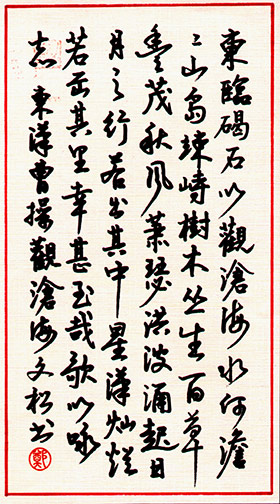 東臨碣石以觀滄海水何澹
〻山島竦峙樹木丛生百草
豐茂秋风萧瑟洪波涌起日
月之行若出其中星漢灿烂
若出其里幸甚至哉歌以咏
志 東漢曹操觀滄海文松书
鄭